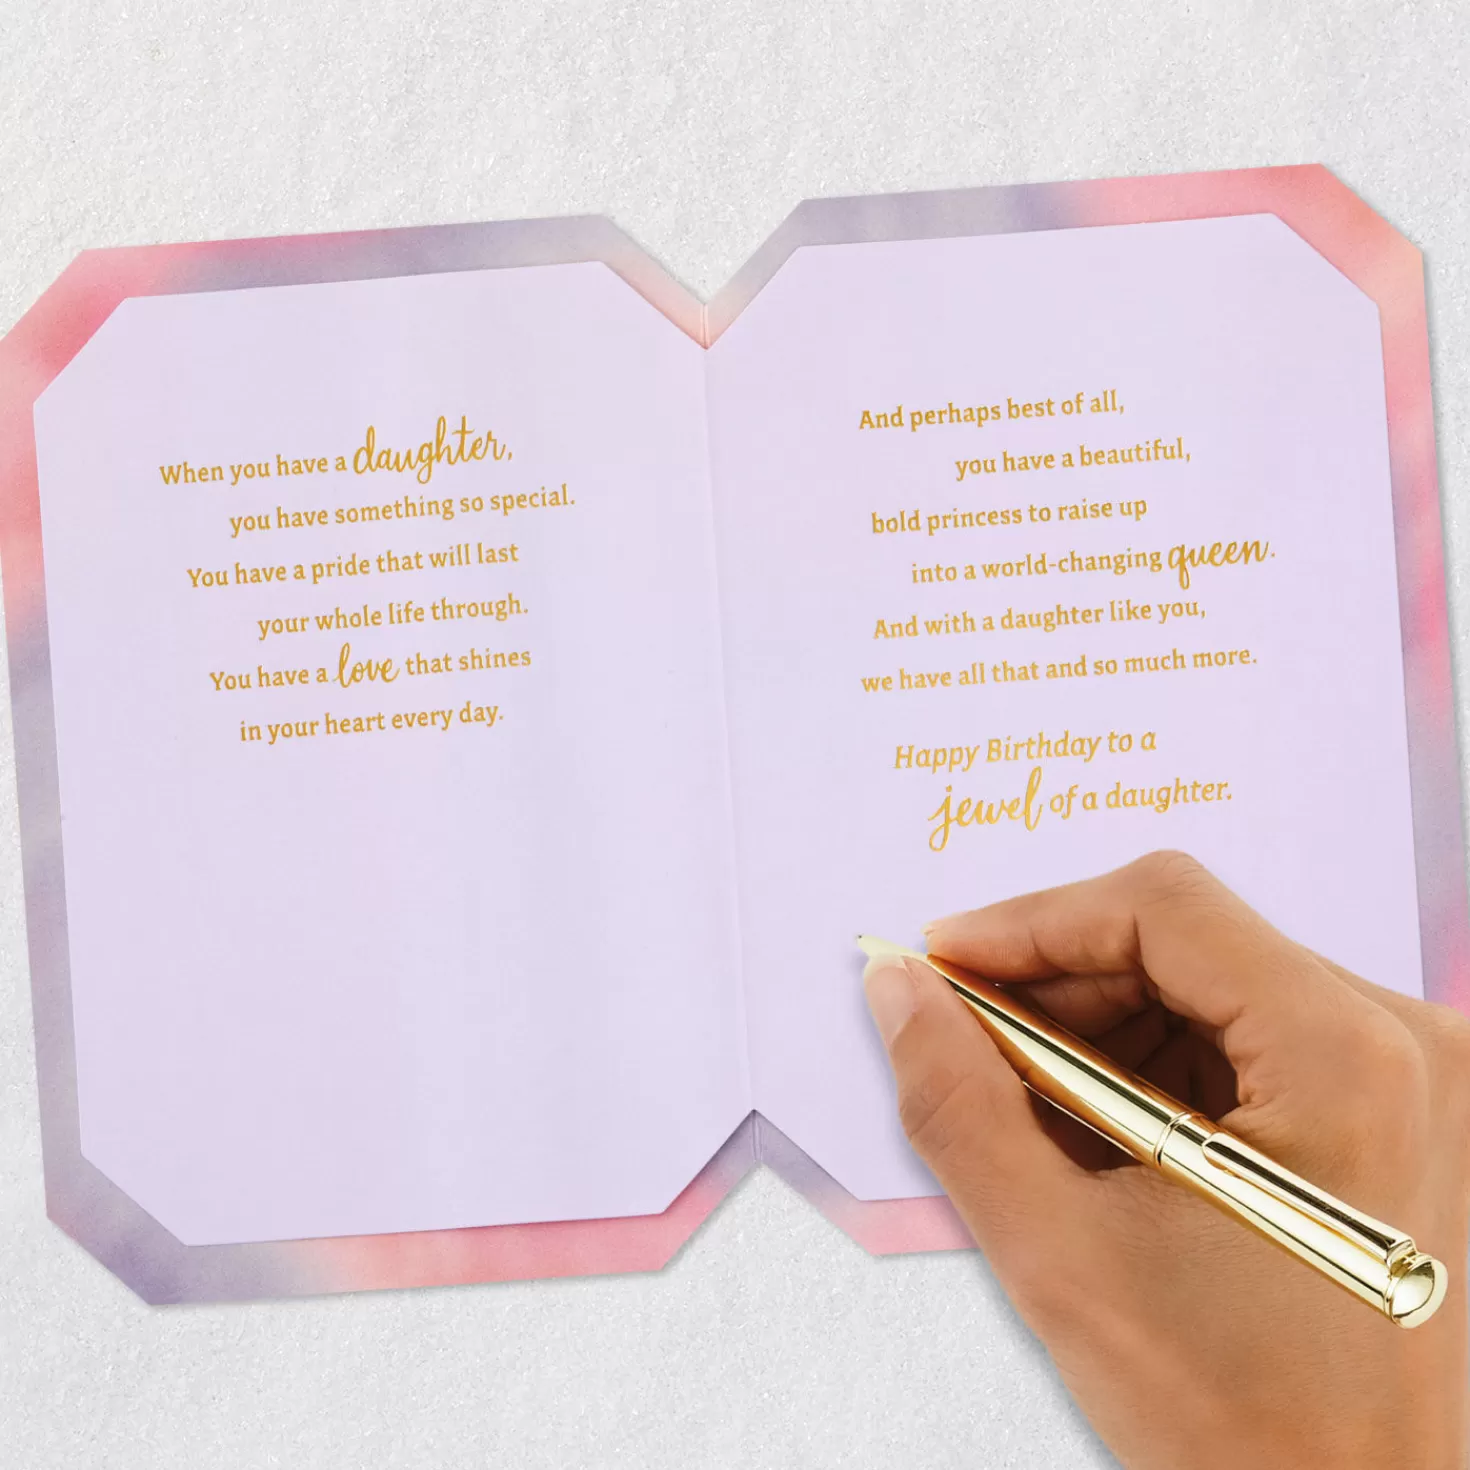 When you have a daughter,
you have something so special.
You have a pride that will last
your whole life through.
You have a love that shines
in your heart every day.
And perhaps best of all,
you have a beautiful,
bold princess to raise up
into a world-changing queen.
And with a daughter like you,
we have all that and so much more.
Happy Birthday to a
jewel of a daughter.